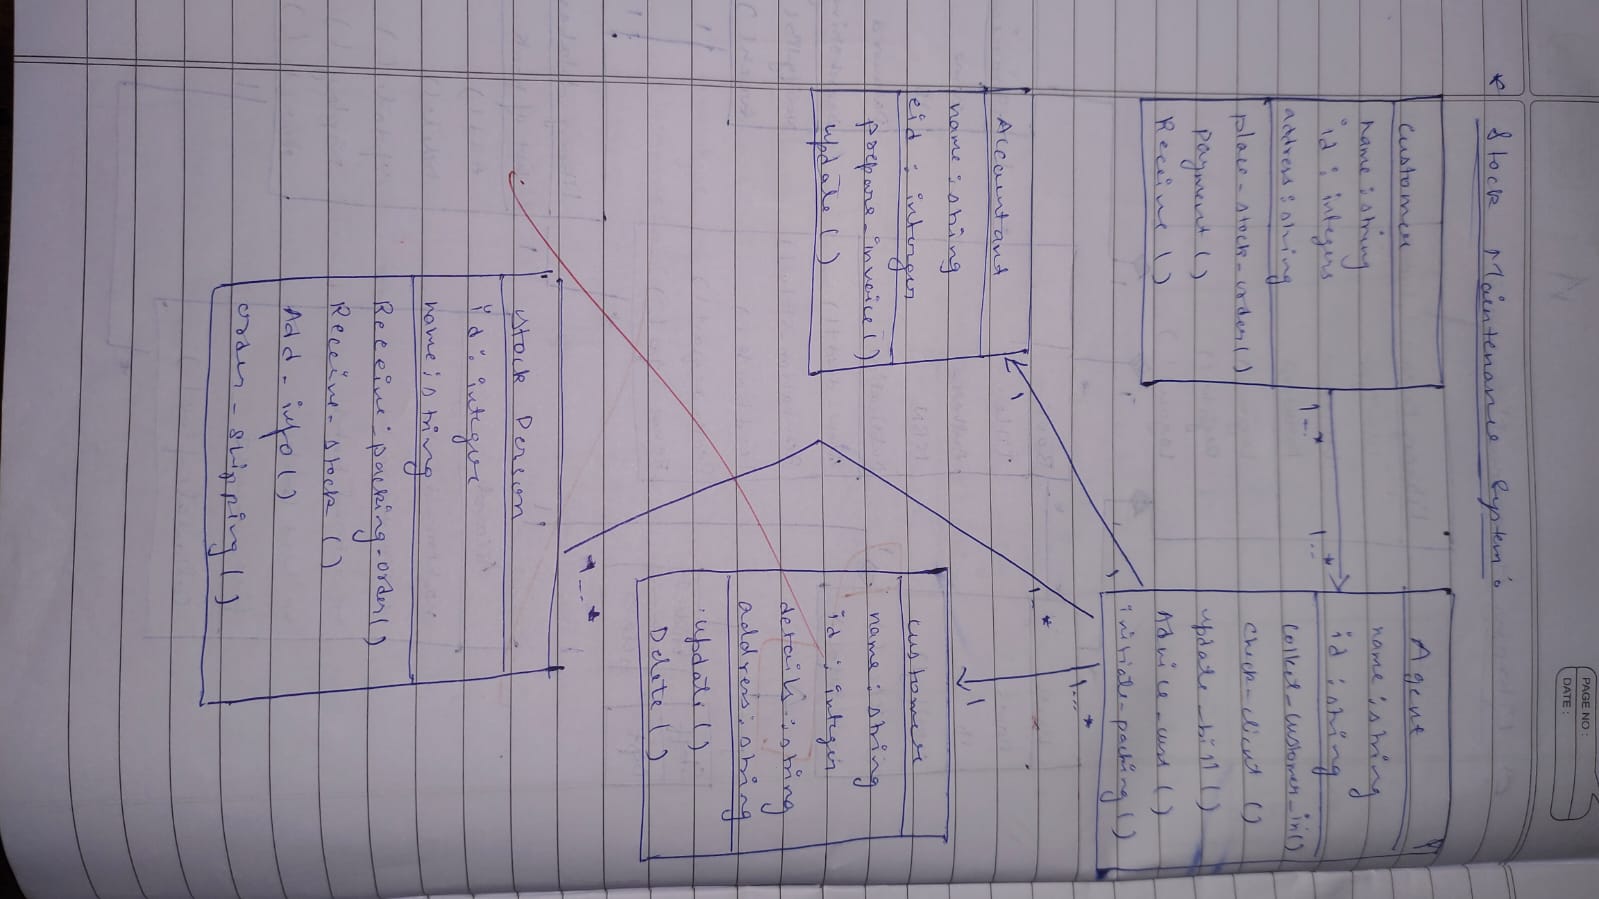 PAGE NO:
DATE:
* Stock Maintenance System:
Customer
name: string
id: integers
address: string
place_stock_order()
payment()
Receive()
1..*
1..*
Agent
name: string
id: string
collect_customer_in()
check_client()
update_bill()
Advice_cust()
initiate_packing()
1
1
1..*
1..*
1
Accountant
name: string
eid: interger
prepare_invoice()
update()
customer
name: string
id: integer
details: string
address: string
update()
Delete()
1..*
stock Person
id: integer
name: string
Receive_packing_order()
Receive_stock()
Add_info()
order_shipping()